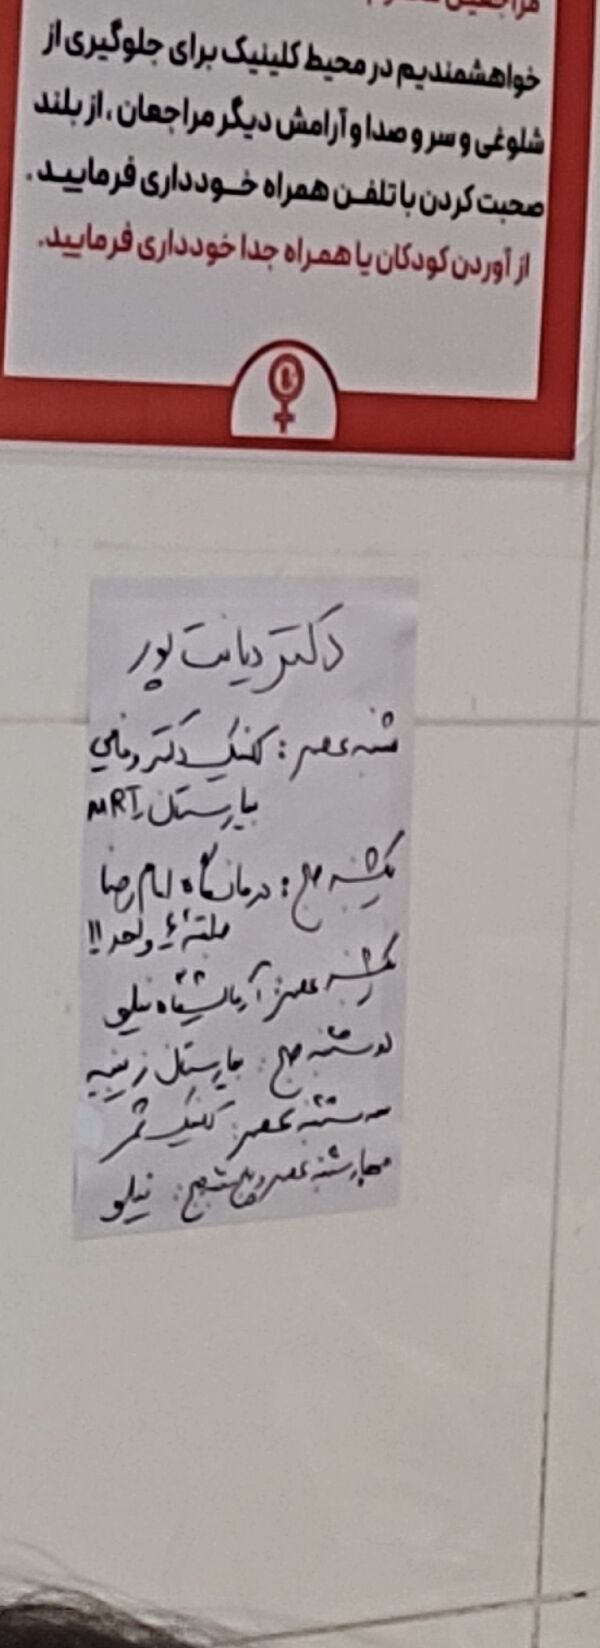 مراجعین محترم
خواهشمندیم در محیط کلینیک برای جلوگیری از
شلوغی و سر و صدا و آرامش دیگر مراجعان ، از بلند
صحبت کردن با تلفن همراه خودداری فرمایید.
از آوردن کودکان یا همراه جدا خودداری فرمایید.
دکتر دیانت پور
شنبه عصر : کلینیک دکتر
بیمارستان MRI
یکشنبه صبح : درمانگاه امام رضا
واحد ۱۱
یکشنبه عصر : آزمایشگاه نیلو
دوشنبه صبح : بیمارستان زینبیه
سه شنبه عصر : کلینیک
چهارشنبه عصر و پنج شنبه صبح : نیلو